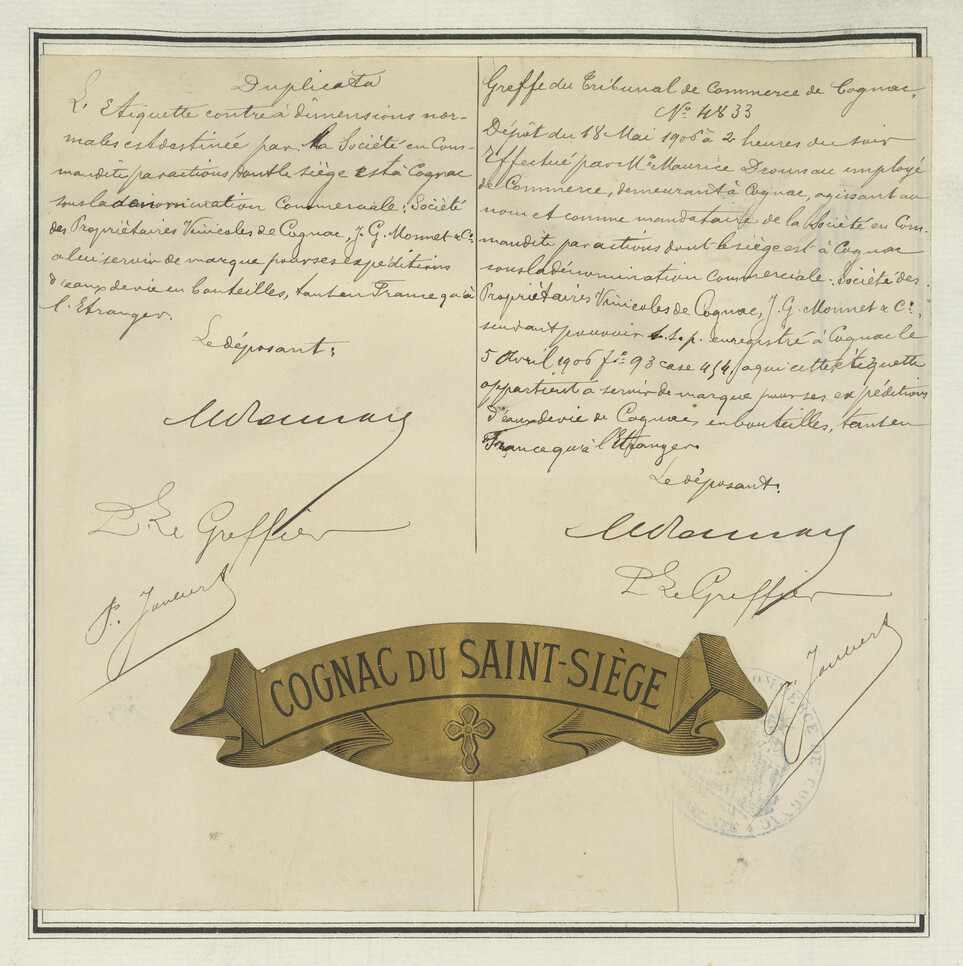 Duplicata
L'Etiquette contre à dimensions nor-
males est destinée par la Société en Com-
mandite par actions dont le siège est à Cognac
sous la dénomination Commerciale: Société
des Propriétaires Vinicoles de Cognac, J. G. Monnet & Cie
a lui servir de marque pour ses expéditions
d'eaux de vie en bouteilles, tant en France qu'à
l'Etranger.
Le déposant:
P. Le Greffier
Greffe du Tribunal de Commerce de Cognac.
No 4833
Dépôt du 18 Mai 1906 à 2 heures du soir
Effectué par Mr Maurice Drouneau employé
de Commerce, demeurant à Cognac, agissant au
nom et comme mandataire de la Société en Com-
mandite par actions dont le siège est à Cognac
sous la dénomination Commerciale: Société des
Propriétaires Vinicoles de Cognac, J. G. Monnet & Cie,
suivant pouvoir s.s.p. enregistré à Cognac le
5 Avril 1906 fo 93 case 454, a qui cette étiquette
appartient a servir de marque pour ses expéditions
d'eaux de vie de Cognac en bouteilles, tant en
France qu'à l'Etranger.
Le déposant:
P. Le Greffier
COGNAC DU SAINT-SIÈGE
COMMERCE DE COGNAC